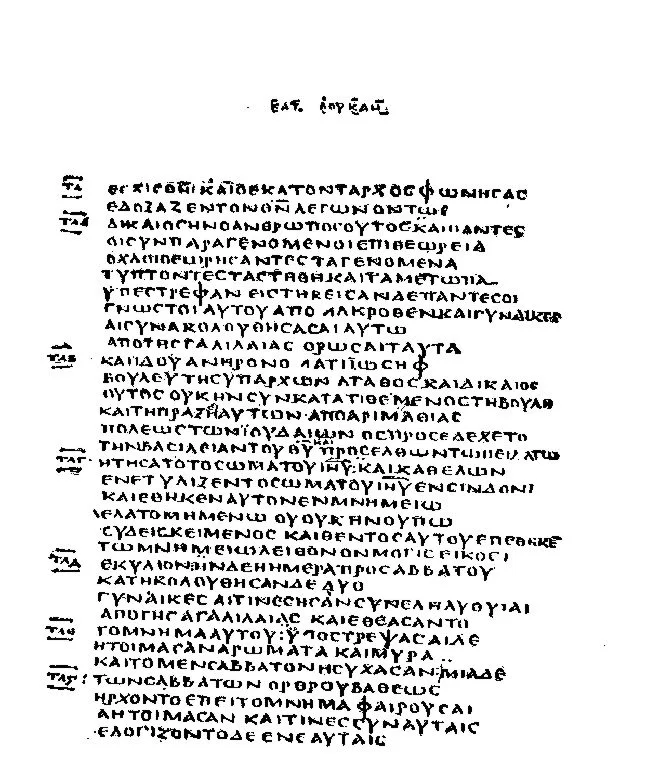 ΚΑΤ ΛΟΥΚΑΝ
ΤΛ ΚΑΙΟΕΚΑΤΟΝΤΑΡΧΟϹΦΩΝΗϹΑϹ
ΕΔΟΞΑΖΕΝΤΟΝΘΝ ΛΕΓΩΝΟΝΤΩϹ
ΤΛΑ ΔΙΚΑΙΟϹΗΝΟΑΝΘΡΩΠΟϹΟΥΤΟϹΚΑΙΠΑΝΤΕϹ
ΟΙϹΥΝΠΑΡΑΓΕΝΟΜΕΝΟΙΕΠΙΘΕΩΡΕΙΑ
ΟΧΛΟΙΘΕΩΡΗϹΑΝΤΕϹΤΑΓΕΝΟΜΕΝΑ
ΤΥΠΤΟΝΤΕϹΤΑϹΤΗΘΗΚΑΙΤΑΜΕΤΩΠΑ
ΥΠΕϹΤΡΕΦΑΝ ΕΙϹΤΗΚΕΙϹΑΝΔΕΠΑΝΤΕϹΟΙ
ΓΝΩϹΤΟΙΑΥΤΟΥΑΠΟ ΜΑΚΡΟΘΕΝΚΑΙΓΥΝΑΙΚΕϹ
ΑΙϹΥΝΑΚΟΛΟΥΘΗϹΑϹΑΙΑΥΤΩ
ΑΠΟΤΗϹΓΑΛΙΛΑΙΑϹ ΟΡΩϹΑΙΤΑΥΤΑ
ΤΛΒ ΚΑΙΙΔΟΥΑΝΗΡΟΝΟΜΑΤΙΙΩϹΗΦ
ΒΟΥΛΕΥΤΗϹΥΠΑΡΧΩΝ ΑΓΑΘΟϹΚΑΙΔΙΚΑΙΟϹ
ΟΥΤΟϹ ΟΥΚΗΝϹΥΝΚΑΤΑΤΙΘΕΜΕΝΟϹΤΗΒΟΥΛΗ
ΚΑΙΤΗΠΡΑΞΙΑΥΤΩΝ ΑΠΟΑΡΙΜΑΘΙΑϹ
ΠΟΛΕΩϹΤΩΝΙΟΥΔΑΙΩΝ ΟϹΠΡΟϹΕΔΕΧΕΤΟ
ΤΗΝΒΑϹΙΛΕΙΑΝΤΟΥΘΥ ΠΡΟϹΕΛΘΩΝΤΩΠΕΙΛΑΤΩ
ΤΛΓ ΗΤΗϹΑΤΟΤΟϹΩΜΑΤΟΥΙΗΥ ΚΑΙΚΑΘΕΛΩΝ
ΕΝΕΤΥΛΙΞΕΝΤΟϹΩΜΑΤΟΥΙΗΥΕΝϹΙΝΔΟΝΙ
ΚΑΙΕΘΗΚΕΝΑΥΤΟΝΕΝΜΝΗΜΕΙΩ
ΛΕΛΑΤΟΜΗΜΕΝΩ ΟΥΟΥΚΗΝΟΥΠΩ
ΟΥΔΕΙϹΚΕΙΜΕΝΟϹ ΚΑΙΘΕΝΤΟϹΑΥΤΟΥΕΠΕΘΗΚΕ
ΤΩΜΝΗΜΕΙΩΛΕΙΘΟΝΟΝΜΟΓΙϹΕΙΚΟϹΙ
ΤΛΔ ΕΚΥΛΙΟΝ ΗΝΔΕΗΗΜΕΡΑΠΡΟϹΑΒΒΑΤΟΥ
ΚΑΤΗΚΟΛΟΥΘΗϹΑΝΔΕ ΔΥΟ
ΓΥΝΑΙΚΕϹ ΑΙΤΙΝΕϹΗϹΑΝϹΥΝΕΛΗΛΥΘΥΙΑΙ
ΑΠΟΤΗϹΓΑΛΙΛΑΙΑϹ ΚΑΙΕΘΕΑϹΑΝΤΟ
ΤΛΕ ΤΟΜΝΗΜΑΑΥΤΟΥ ΥΠΟϹΤΡΕΨΑϹΑΙΔΕ
ΗΤΟΙΜΑϹΑΝΑΡΩΜΑΤΑ ΚΑΙΜΥΡΑ
ΚΑΙΤΟΜΕΝϹΑΒΒΑΤΟΝΗϹΥΧΑϹΑΝ ΜΙΑΔΕ
ΤΛϚ ΤΩΝϹΑΒΒΑΤΩΝ ΟΡΘΡΟΥΒΑΘΕΩϹ
ΗΡΧΟΝΤΟΕΠΕΙΤΟΜΝΗΜΑΦΑΙΡΟΥϹΑΙ
ΑΗΤΟΙΜΑϹΑΝ ΚΑΙΤΙΝΕϹϹΥΝΑΥΤΑΙϹ
ΕΛΟΓΙΖΟΝΤΟΔΕ ΕΝΕΑΥΤΑΙϹ